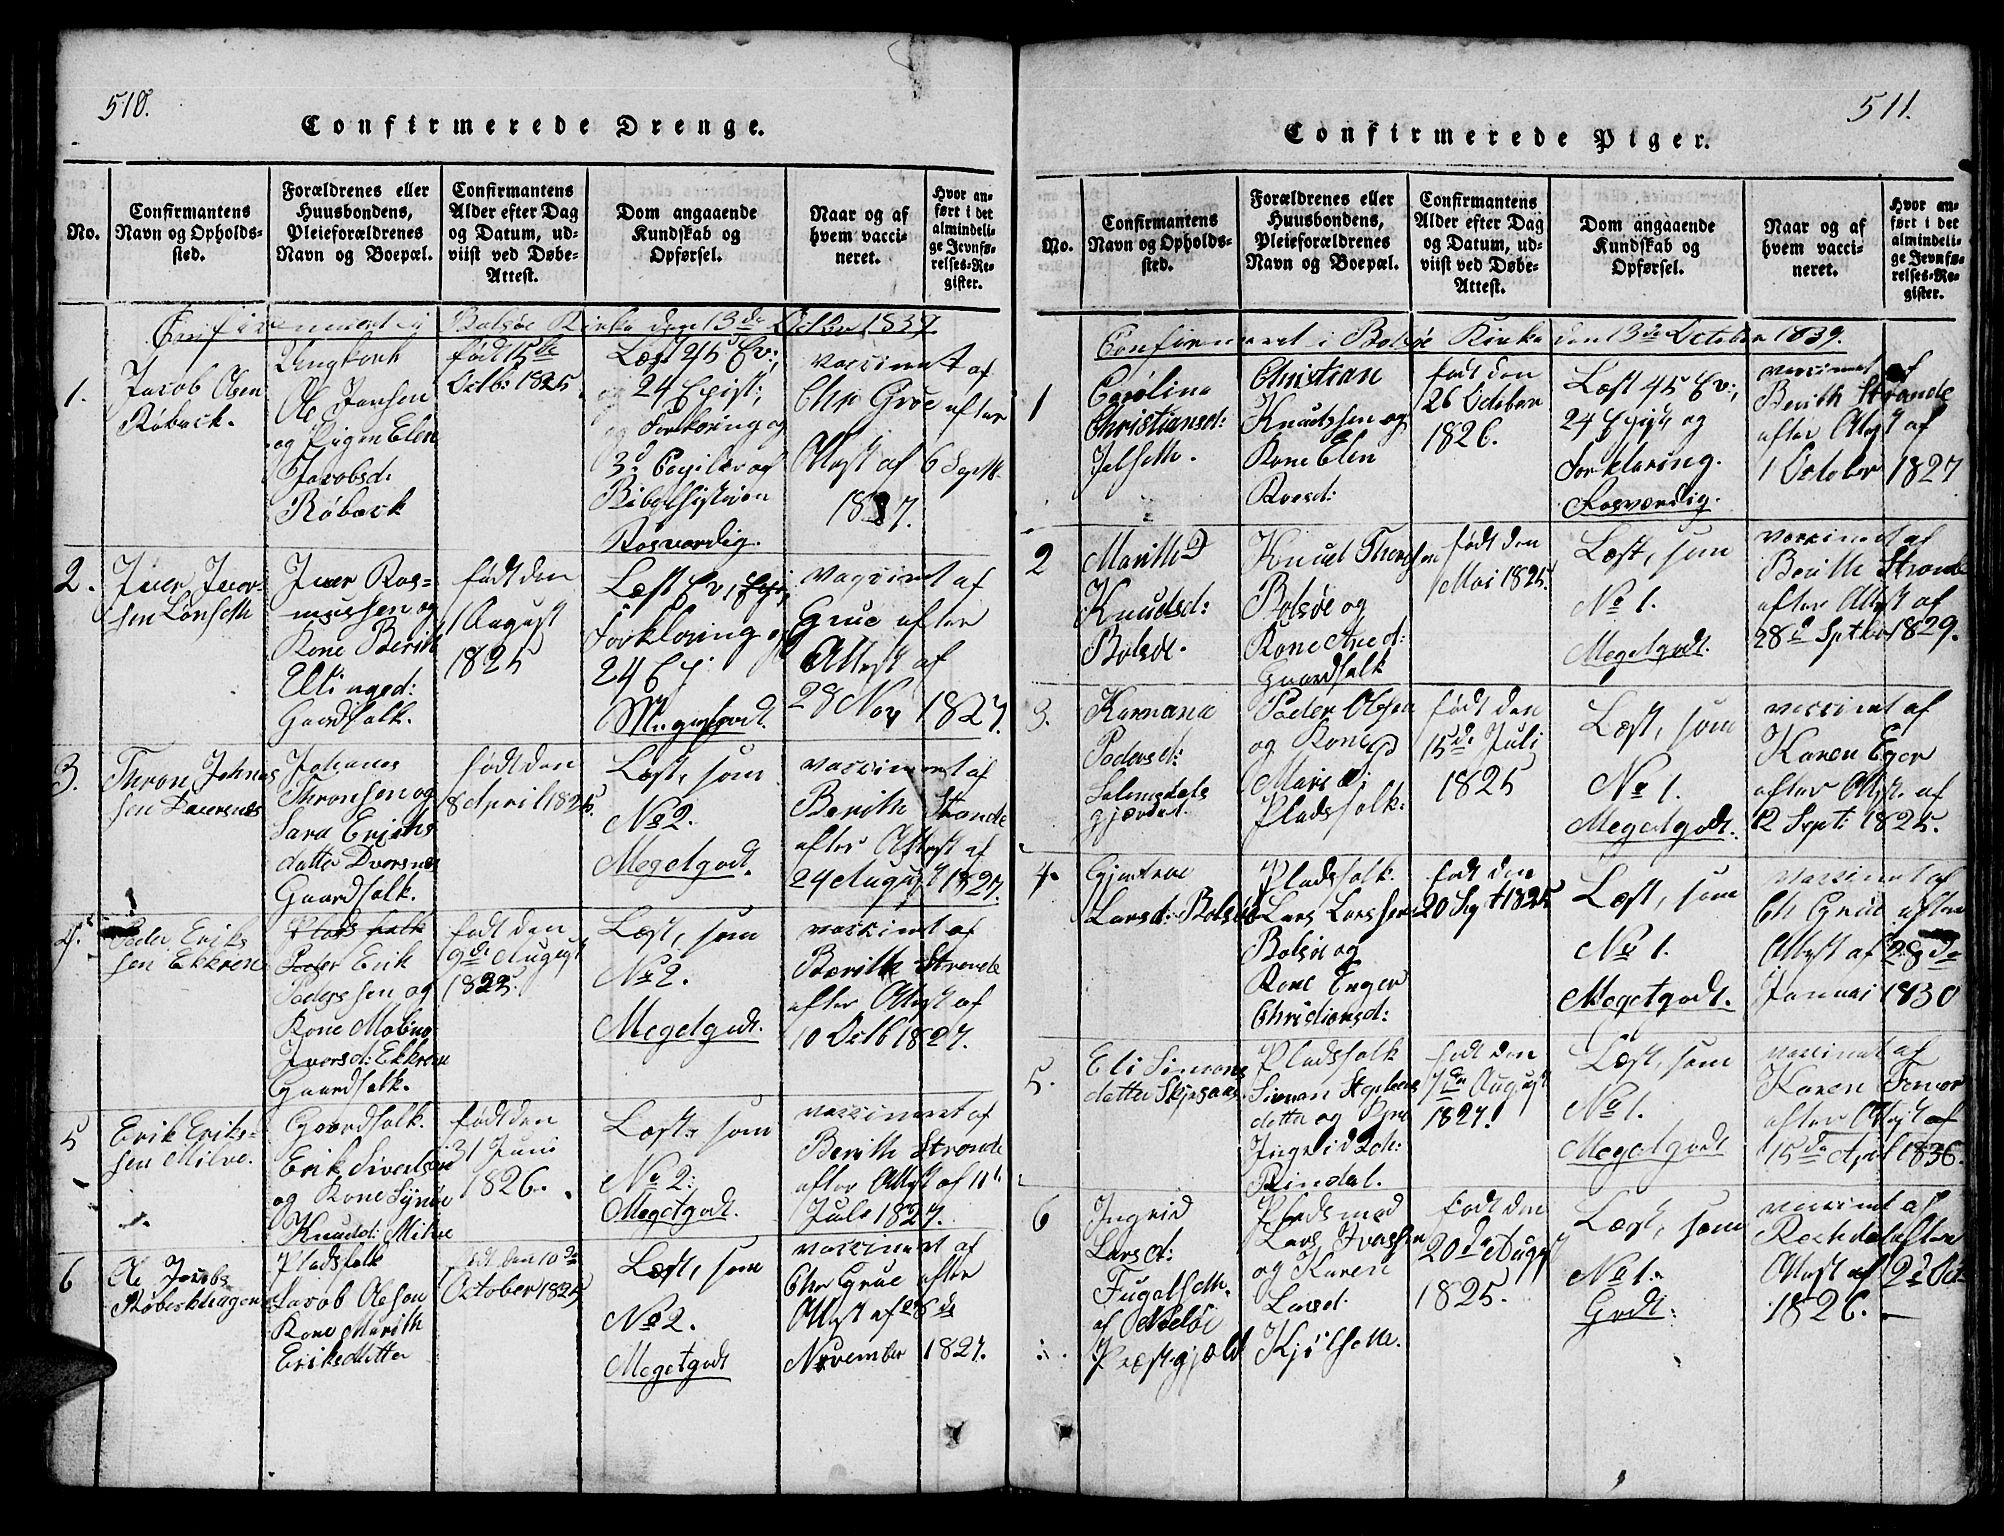 510.
Confirmerede Drenge.
No.
Confirmantens
Navn og Opholds-
sted.
Forældrenes eller
Huusbondens,
Pleieforældrenes
Navn og Boepæl.
Confirmantens
Alder efter Dag
og Datum, ud-
viist ved Døbe-
Attest.
Dom angaaende
Kundskab og
Opførsel.
Naar og af
hvem vacci-
neret.
Hvor an-
ført i det
almindeli-
ge Jevnfø-
relses-Re-
gister.
Bolsøe Kirke den 13de Octbr 1839.
1.
Jacob Olsen
Røbæck.
Ungkarl
Ole Jansen
og Pigen Elen
Jacobsd:
Røbæck
født 15de
Octb: 1825.
Læst 45 Ev:,
og 24 Epist;
og Forklaring og
3d Capitler af
Bibelhistorien
Rosværdig.
vaccinet af
Chr Grue efter
Attest af 6 Septb.
1827.
2.
Iver Iver-
sen Lønseth
Iver Ras-
mussen og
Kone Berith
Ellingsd:
Gaardfolk.
født den
1 August
1825
Læst Ev,
Forklaring og
24 Ep
Megetgodt.
vaccinet af
Grue efter
Attest af
28 Nov 1827.
3.
Thron Johnas
sen Dversnes
Johanes
Thronsen og
Sara Erichs
datter Dversnes
Gaardfolk.
født den
8 April 1825.
Læst, som
No 2.
Megetgodt.
vaccinet af
Berith Strande
efter Attest af
24 August 1827.
4.
Peder Eriks
sen Ekkren
Plads folk
Peder Erik
Pedersen og
Kone Malena
Iversd: Ekkren
Gaardfolk.
født den
9de August
1825.
Læst, som
No 2.
Megetgodt.
vaccinet af
Berith Strande
efter Attest af
10 Octb 1827.
5
Erik Eriks-
sen Milve.
Gaardfolk.
Erik Sivertsen
og Kone Synøe
Knudsd: Milve
født den
21 Juni
1826.
Læst, som
No 2:
Megetgodt.
vaccineret af
Berith Strande
efter Attest af 11te
Juli 1827.
6
Ole Jacobs
Røbekhagen
Pladsfolk
Jacob Olesen
Kone Marith
Eriksdatter
født den 10de
October 1825
Læst, som
No 2.
Megetgodt
vaccineret af
Chr Grue efter
Attest af 26de
November 1827.
511.
Confirmerede Piger.
No.
Confirmantens
Navn og Opholds-
sted.
Forældrenes eller
Huusbondens,
Pleieforældrenes
Navn og Boepæl.
Confirmantens
Alder efter Dag
og Datum, ud-
viist ved Døbe-
Attest.
Dom angaaende
Kundskab og
Opførsel.
Naar og af
hvem vacci-
neret.
Hvor an-
ført i det
almindeli-
ge Jevnfø-
relses-Re-
gister.
Confirmeret i Bolsøe Kirke den 13de October 1839.
1
Carolina
Christiansd:
Jelseth.
Christian
Knudssen og
Kone Elen
Roesd:
født den
26 October
1826.
Læst 45 Ev:,
24 Epist og
Forklaring.
Rosværdig.
vaccinet af
Berith Strande
efter Attest af
1 October 1827
2
Marith
Knudsd:
Bolsøe.
Knud
Bolsøe og
Kone Aned:
Gaardfolk
født den
1 Mai 1825.
Læst, som
No 1.
Megetgodt.
vaccinet af
Berith Strande
efter Attest af
28d Septbr 1829.
3.
Karnana
Pedersd:
Peder Olsen
og Kone
Marie
Pladsfolk:
født den
15de Juli
1825
Læst, som
No 1.
Megetgodt.
vaccinet af
Karen Eger
efter Attest af
12 Sept: 1825.
4.
Gjertrue
Larsd: Bolsøe
Pladsfolk
Lars Larssen
Bolsøe og
Kone Enger
Christensd:
født den
20 Sept 1825
Læst, som
No 1.
Megetgodt.
vaccinet af
Ch Grue efter
Attest af 28de
Januai 1830
5.
Eli Simons
datter
Pladsfolk
Simon
datter og
Rindal.
født den
7de August
1827.
Læst, som
No 1.
Megetgodt
vaccinet af
Karen
efter Attest af
15de April 1836.
6
Ingrid
Larsd:
Fugelseth.
af Nesøe
Præstegjæld
Pladsmad
Lars
og Karen
Larsd.
Kjølseth.
født den
20de August
1825.
Læst, som
No 1.
Godt:
vaccinet af
efter
Attest af 2d Oct
1826.